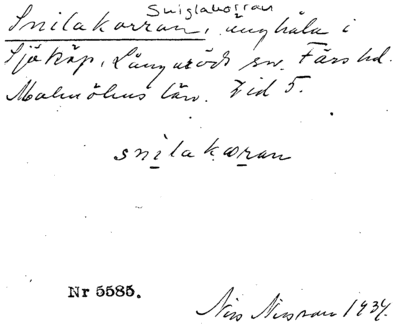 Sniglakorran
Snilakorran, änghåla i
Sjökåp, Långaröds sn. Färs hd.
Malmöhus län. Vid 5.
snilakoran
Nr 5585.
Nils Nilsson 1934.